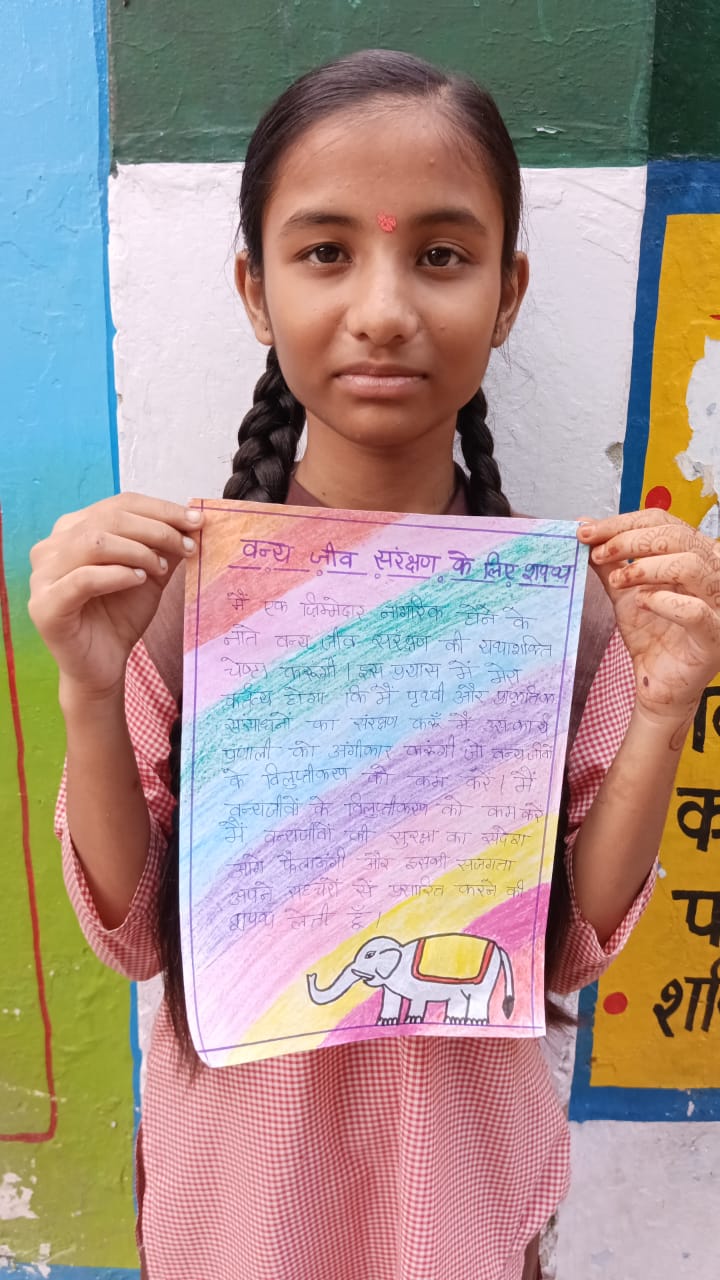 वन्य जीव संरक्षण के लिए शपथ
मैं एक जिम्मेदार नागरिक होने के
नाते वन्य जीव संरक्षण की यथाशक्ति
चेष्टा करूंगी। इस प्रयास में मेरा
कर्तव्य होगा कि मैं पृथ्वी और प्राकृतिक
संसाधनों का संरक्षण करूँ मैं उस कार्य
प्रणाली को अंगीकार करूंगी जो वन्य जीवों
के विलुप्तीकरण को कम करे। मैं
वन्यजीवों के विलुप्तीकरण को कम करे
मैं वन्यजीवों की सुरक्षा का संदेश
आगे फैलाऊंगी और इसकी सजगता
अपने सहचरों से प्रसारित करने की
शपथ लेती हूँ।
शक्ति